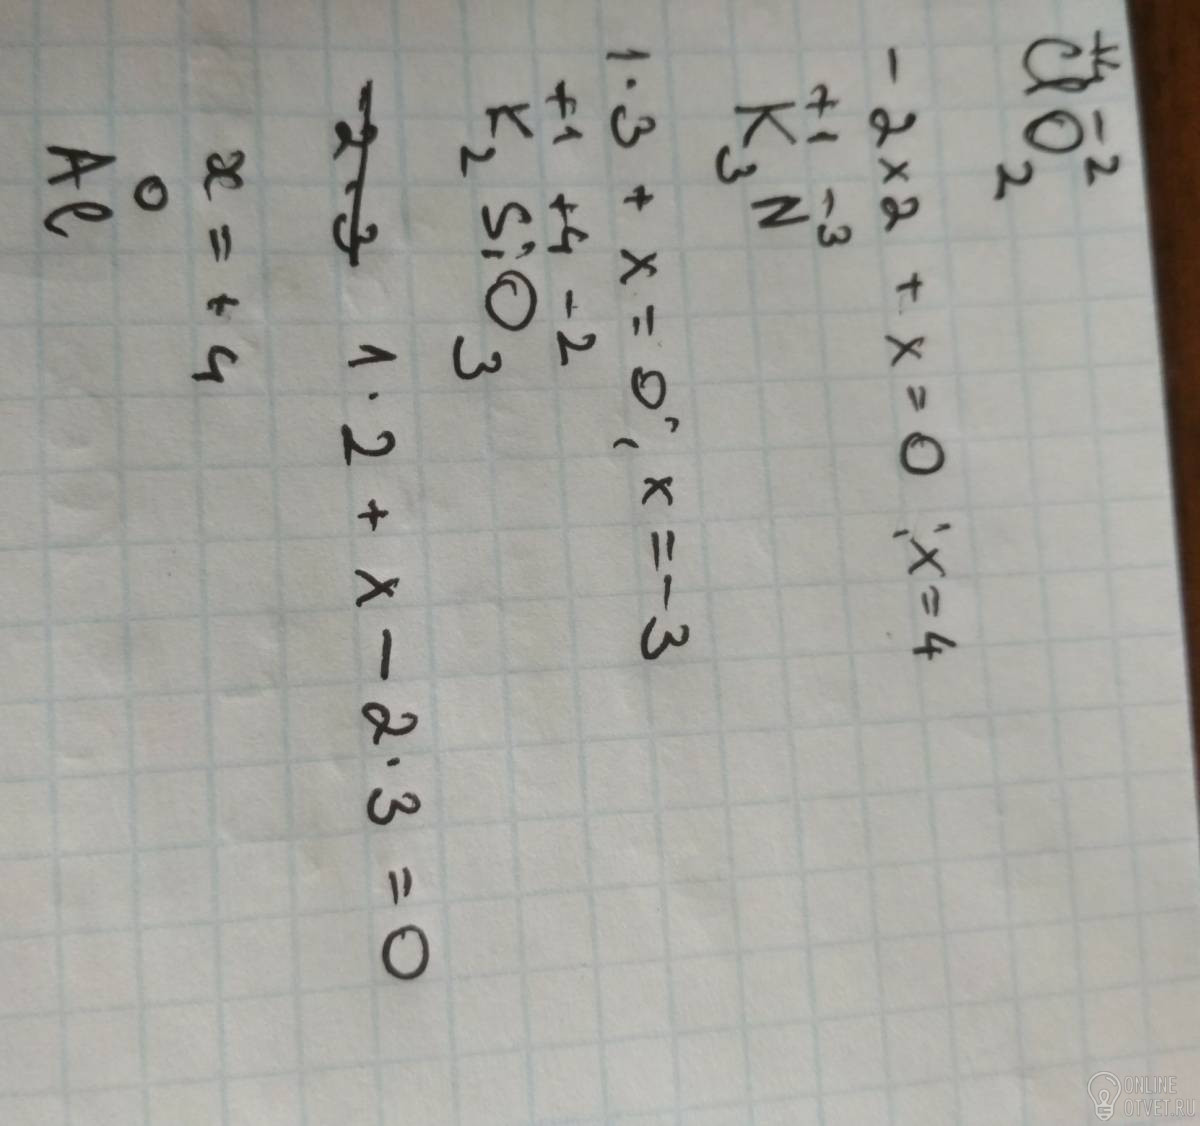 +4 -2
ClO2
-2×2 + x = 0 ; x = 4
+1 -3
K3N
1·3 + x = 0 ; x = -3
+1 +4 -2
K2SiO3
-2·3 1·2 + x - 2·3 = 0
x = +4
0
Al
ONLINE
OTVET.RU